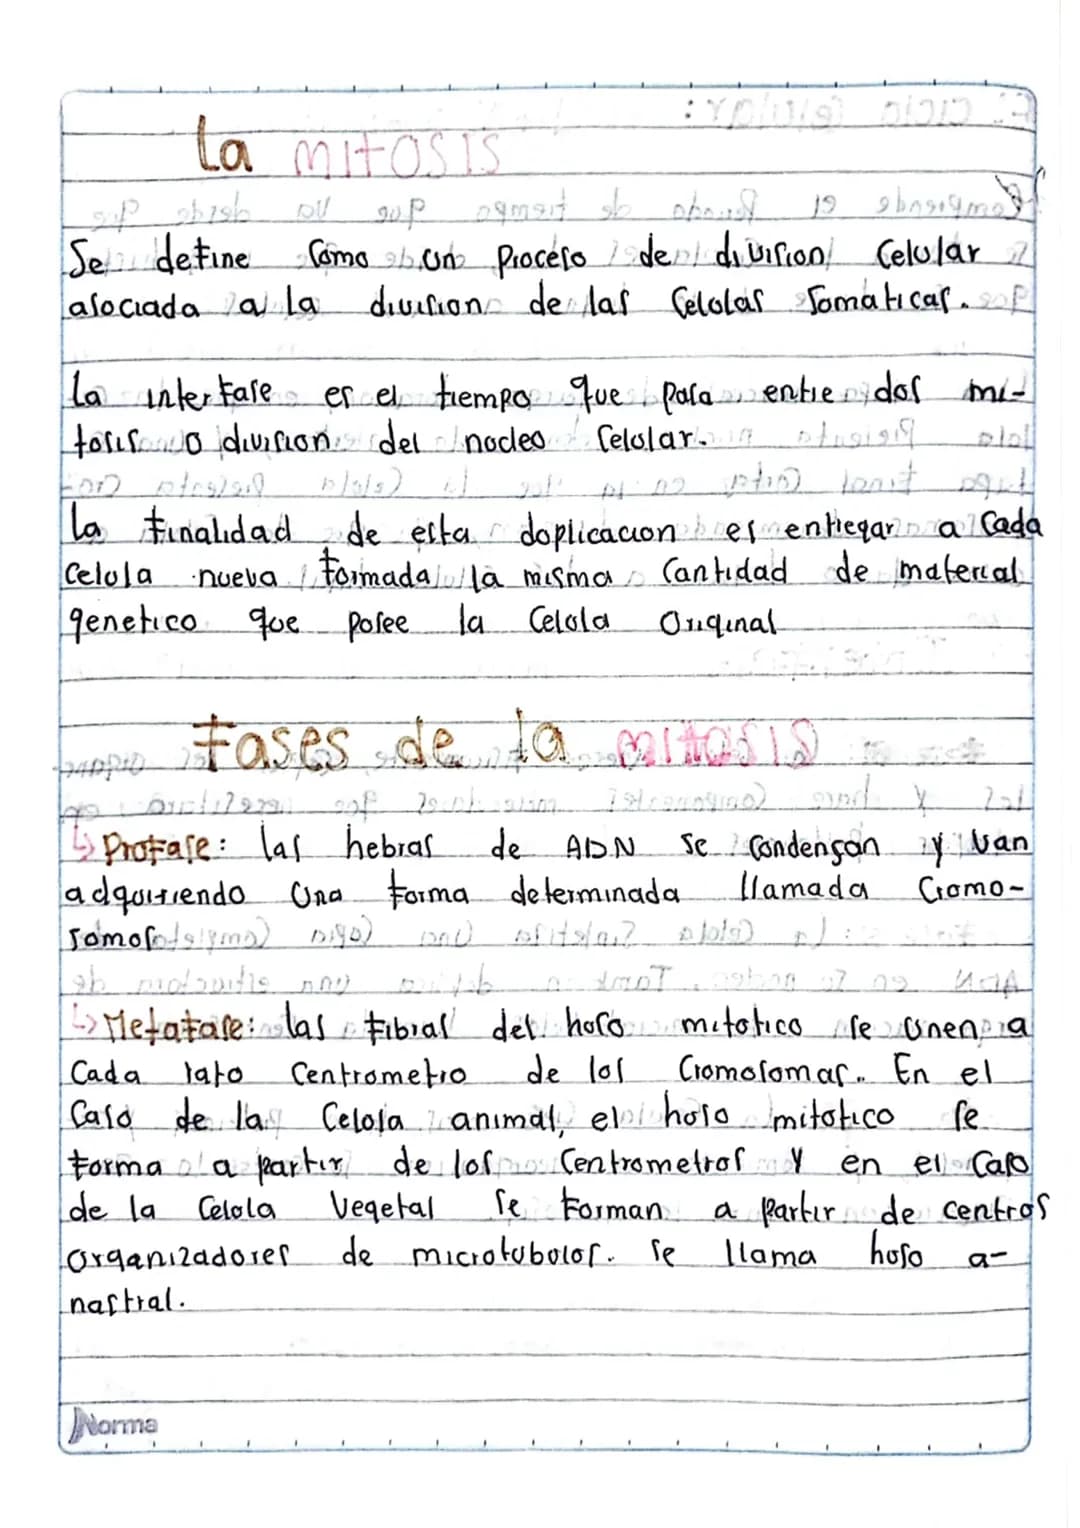 La mitosis
Se define Como un Proceso de division Celular
asociada a la division de las Celolas Somaticas.
La interfase es el tiempo que pasa entre dos mi-
tosis o division del nocleo Celular.
La finalidad de esta doplicacion es entregar a Cada
Celula nueva formada la misma Cantidad de material
genetico que posee la Celola Original
Fases de la mitosis
↳ Profase: las hebras de ADN se Condensan y van
adquiriendo Una forma determinada llamada Cromo-
somos
↳ Metafase: las fibras del huso mitotico se Unen a
Cada lato Centrometro de los Cromosomas. En el
Caso de la Celola animal, el huso mitotico se
forma a partir de los Centrometros y en el Caso
de la Celola Vegetal se Forman a partir de centros
Organizadores de microtubolos. se llama huso a-
nastral.
Norma